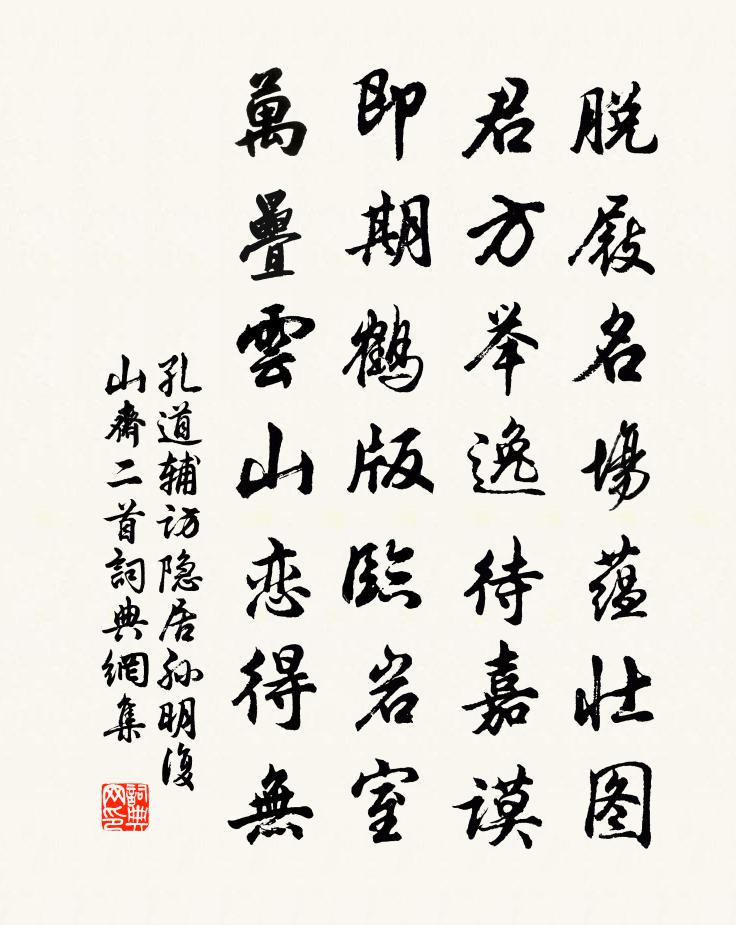 脱屐名場蕴壮图
君方举逸待嘉谟
即期鶴版臨岩室
萬疊雲山恋得無
孔道辅访隐居孙明復
山齋二首詞典網集
詞典网印